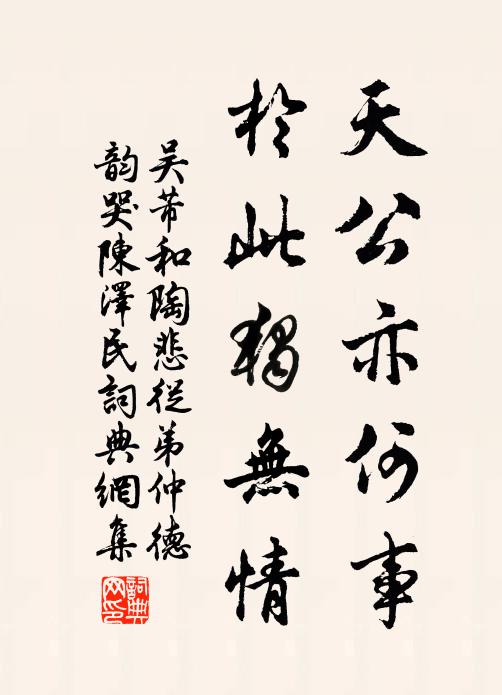 天公亦何事
於此獨無情
吴芾和陶悲從弟仲德
韵哭陳澤民詞典網集